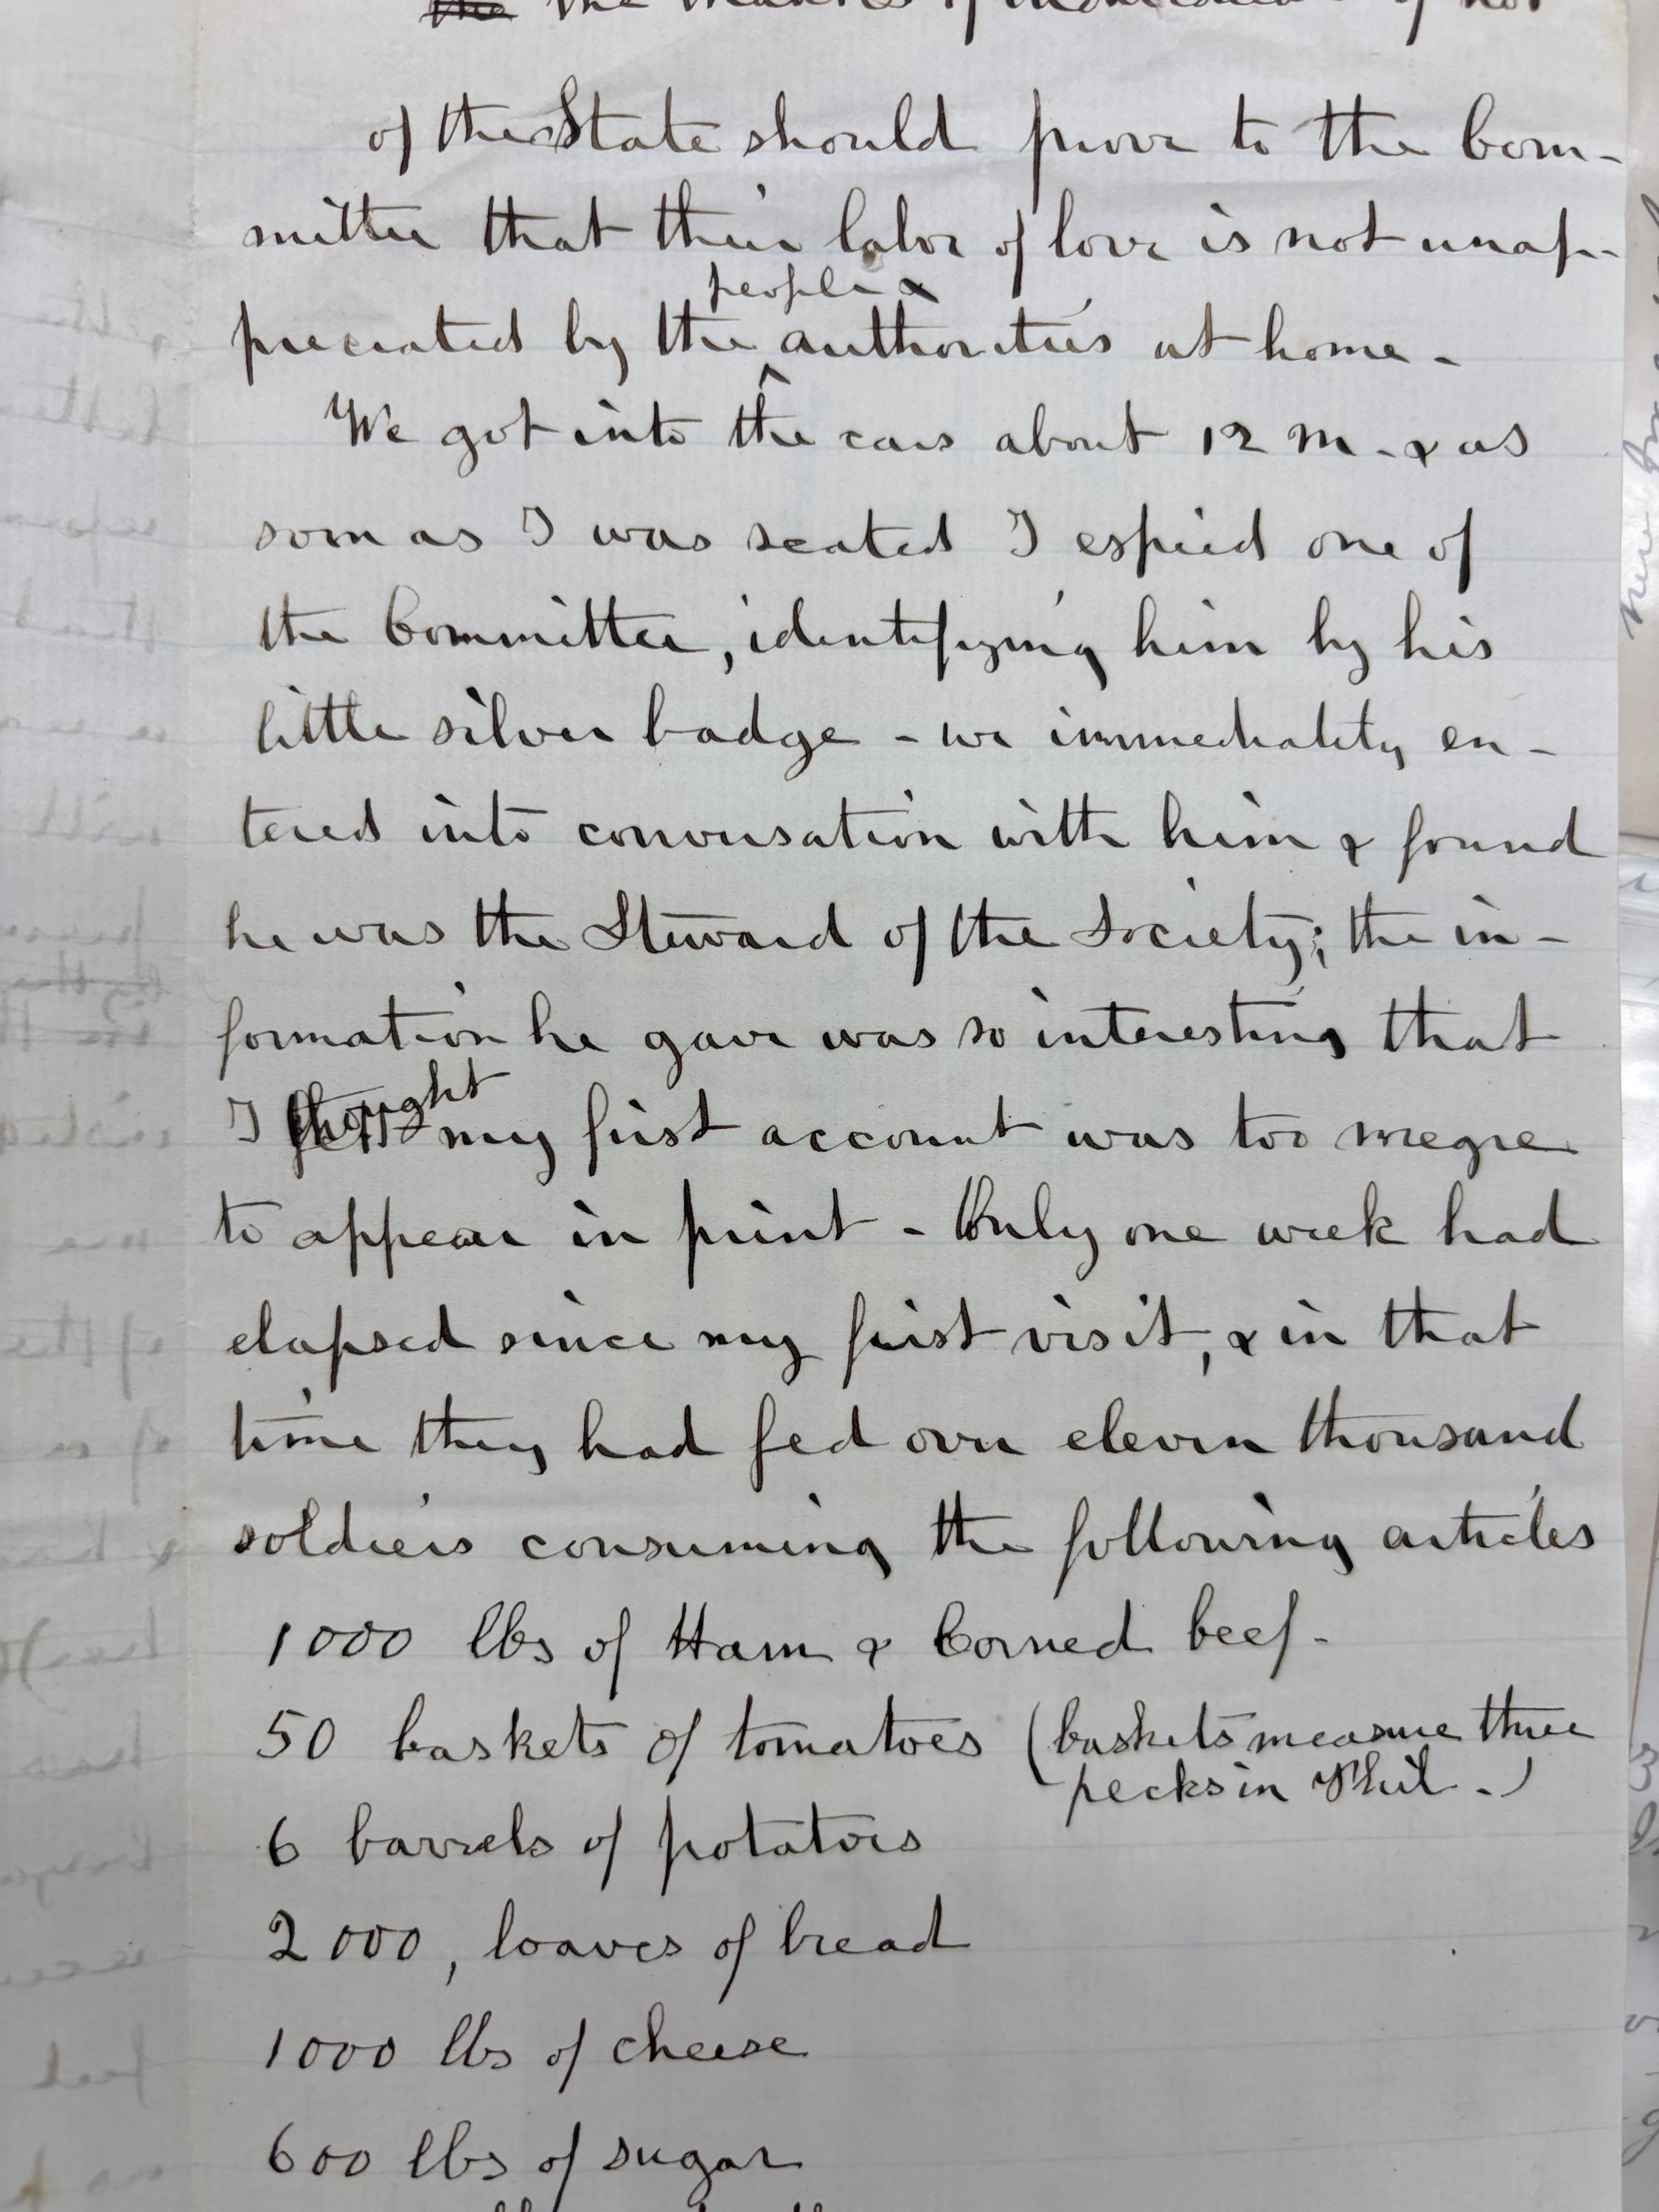 the the thanks of
of the State should prove to the Com-
mittee that their labor of love is not unap-
people &
preciated by the authorities at home -
We got into the cars about 12 M. & as
soon as I was seated I espied one of
the Committee, identifying him by his
little silver badge - we immediately en-
tered into conversation with him & found
he was the Steward of the Society; the in-
formation he gave was so interesting that
I thought my first account was too megre
to appear in print - Only one week had
elapsed since my first visit, & in that
time they had fed over eleven thousand
soldiers consuming the following articles
1000 lbs of Ham & Corned beef -
50 baskets of tomatoes (baskets measure three
pecks in Phil -)
6 barrels of potatoes
2000, loaves of bread
1000 lbs of cheese
600 lbs of sugar